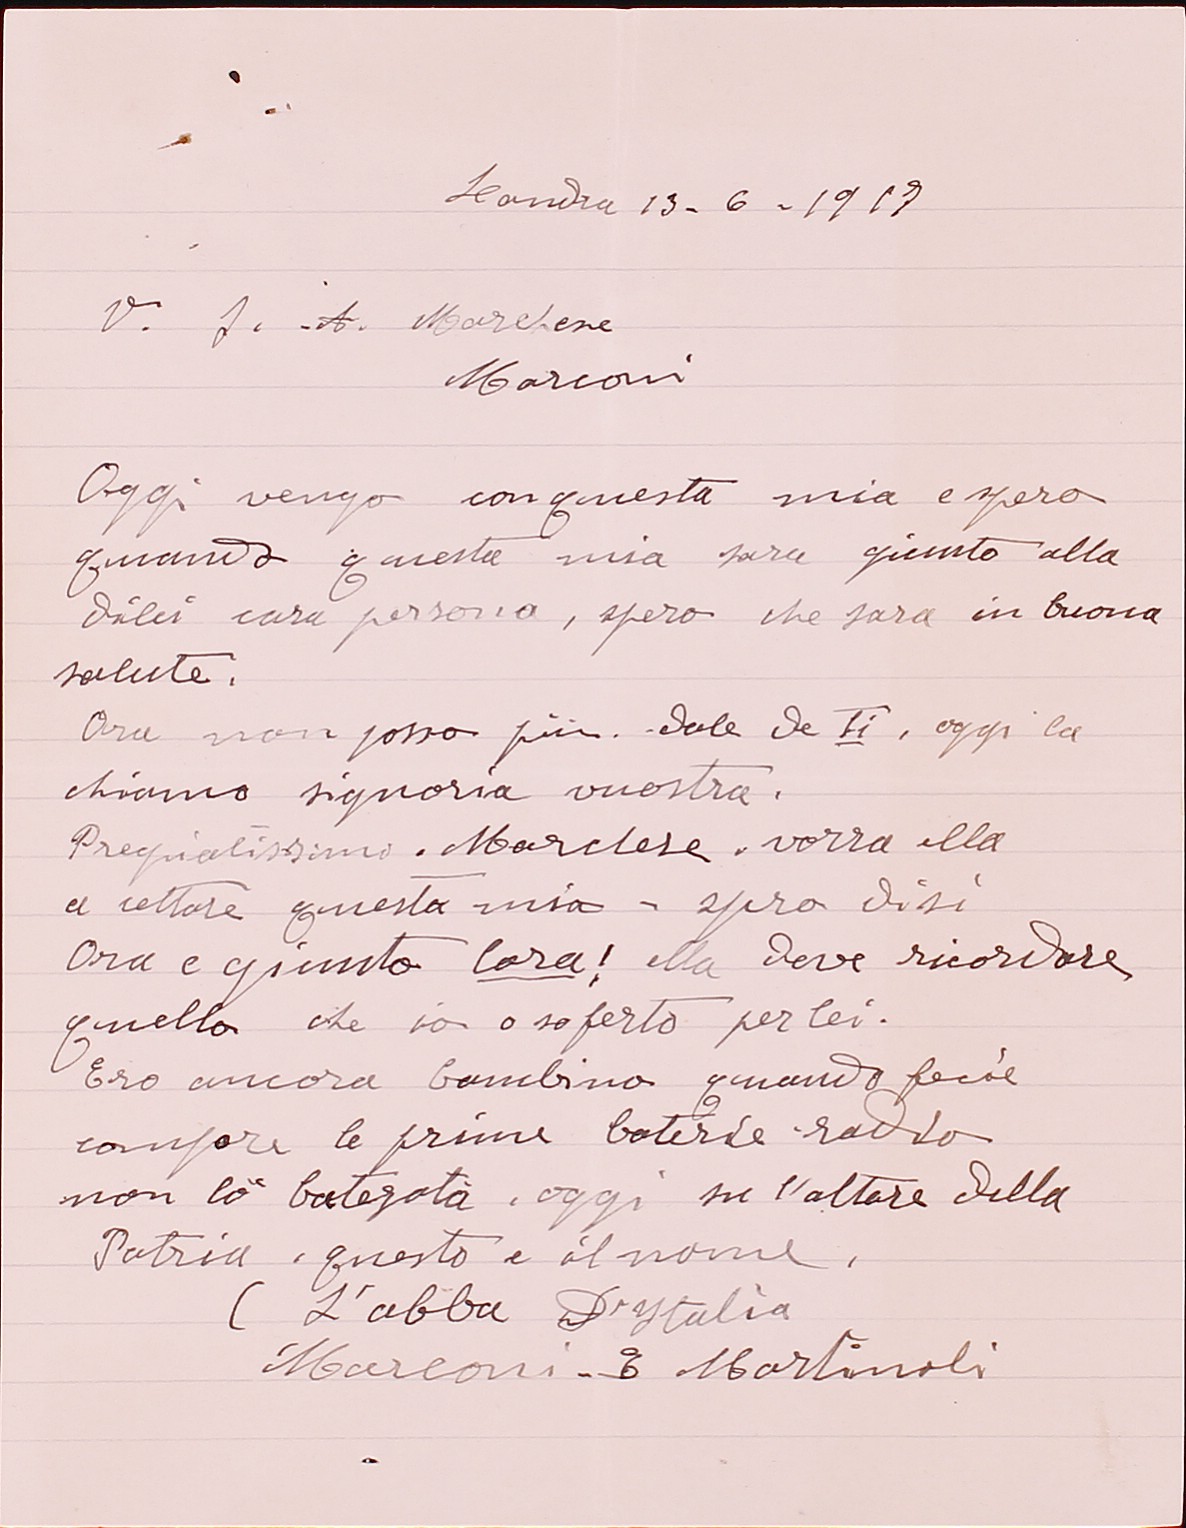 Londra 13-6-1917
V. S. A. Marchese
Marconi
Oggi vengo conquesta mia e spero
quando questa mia sara giunto alla
dolci cara persona, spero che sara in buona
salute.
Ora non posso più. dale de ti, oggi la
chiamo signoria vuostra.
Pregiatissimo. Marchese. vorra ella
a cettare questa mia - spro disi
Ora e giunto lora! ella deve ricordare
quello che io o soferto per lei.
Ero ancora bambino quando fecie
compare le prime baterie radio
non lò bategata, oggi su l'altare della
Patria, questo e il nome,
( L'abba D'Ytalia
Marconi - E Martinoli